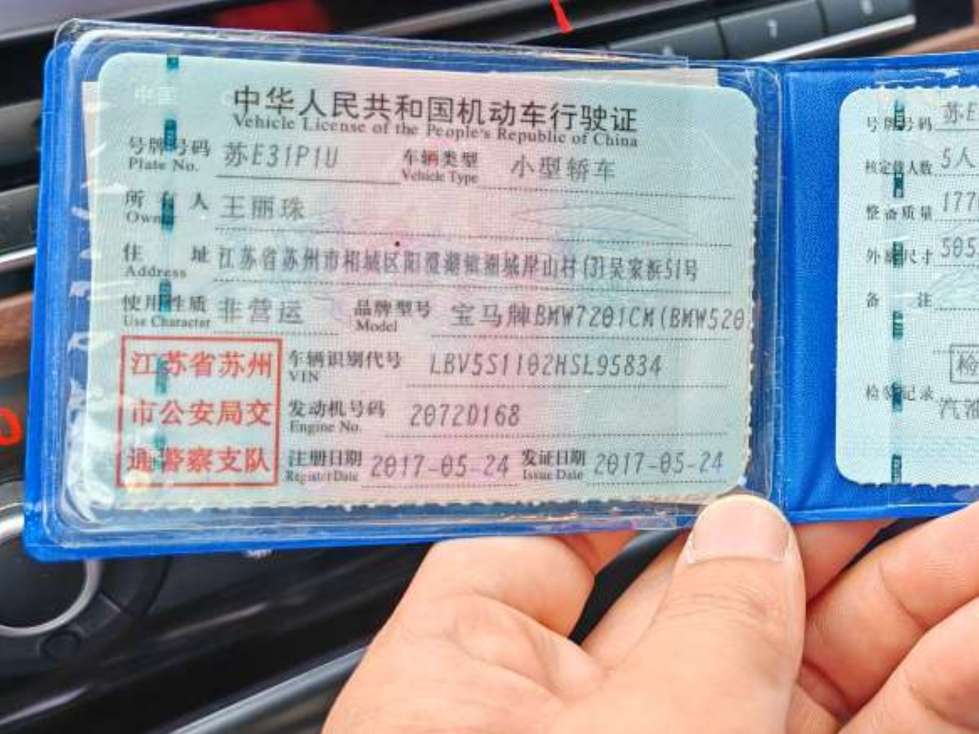 中华人民共和国机动车行驶证
Vehicle License of the People's Republic of China
号牌号码 苏E31P1U 车辆类型 小型轿车
Plate No. Vehicle Type
所有人 王丽珠
Owner
住址 江苏省苏州市相城区阳澄湖镇湘城岸山村(3)吴家浜51号
Address
使用性质 非营运 品牌型号 宝马牌BMW7201CM(BMW520
Use Character Model
江苏省苏州
市公安局交
通警察支队
车辆识别代号 LBV5S1102HSL95834
VIN
发动机号码 2072D168
Engine No.
注册日期 2017-05-24 发证日期 2017-05-24
Register Date Issue Date
号牌号码 苏E
核定载人数 5人
整备质量 177
外廓尺寸 505
备注
检
检验记录
7
8